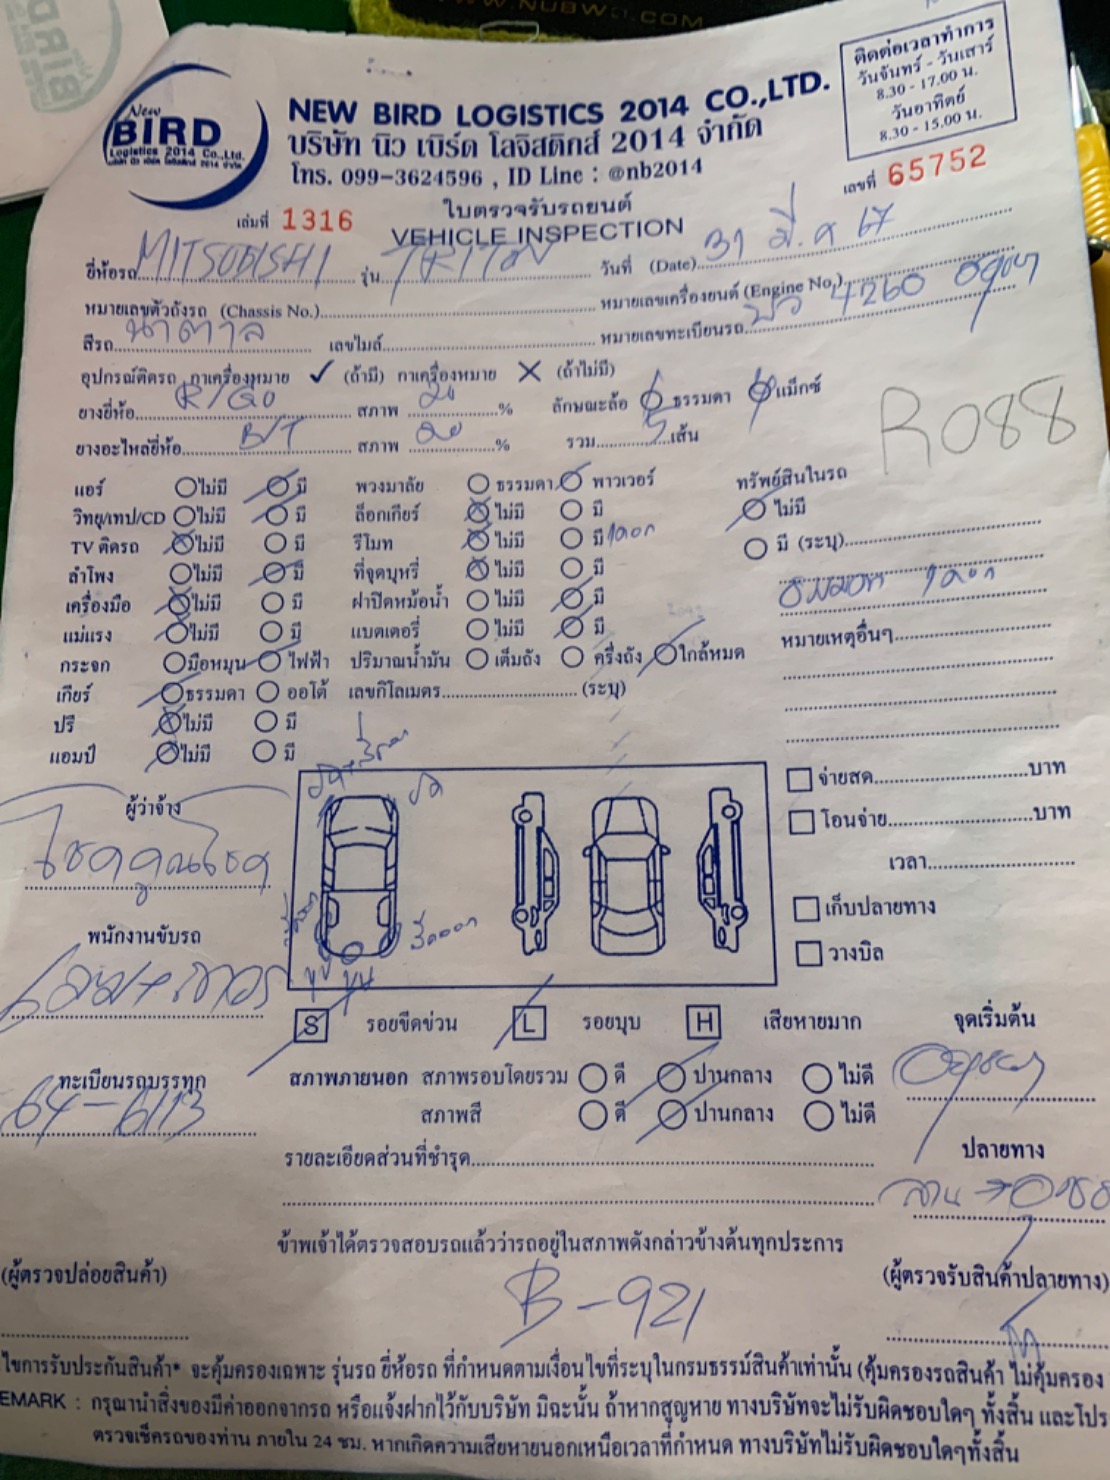 WWW.NUBWO.COM
ติดต่อเวลาทำการ
วันจันทร์ - วันเสาร์
8.30 - 17.00 น.
วันอาทิตย์
8.30 - 15.00 น.
New
BIRD
Logistics 2014 Co.,Ltd.
บริษัท นิว เบิร์ด โลจิสติกส์ 2014 จำกัด
NEW BIRD LOGISTICS 2014 CO.,LTD.
บริษัท นิว เบิร์ด โลจิสติกส์ 2014 จำกัด
โทร. 099-3624596 , ID Line : @nb2014
เล่มที่ 1316
ใบตรวจรับรถยนต์
VEHICLE INSPECTION
เลขที่ 65752
ยี่ห้อรถ MITSUBISHI รุ่น TRITON วันที่ (Date) 31 มี.ค 67
หมายเลขตัวถังรถ (Chassis No.) หมายเลขเครื่องยนต์ (Engine No.)
สีรถ น้ำตาล เลขไมล์ หมายเลขทะเบียนรถ 4260 อยุธยา
อุปกรณ์ติดรถ กาเครื่องหมาย ✓ (ถ้ามี) กาเครื่องหมาย ✕ (ถ้าไม่มี)
ยางยี่ห้อ สภาพ 20 % ลักษณะล้อ ธรรมดา แม็กซ์
ยางอะไหล่ยี่ห้อ B/T สภาพ 20 % รวม 5 เส้น
R088
แอร์ ไม่มี มี พวงมาลัย ธรรมดา พาวเวอร์ ทรัพย์สินในรถ
วิทยุ/เทป/CD ไม่มี มี ล็อกเกียร์ ไม่มี มี ไม่มี
TV ติดรถ ไม่มี มี รีโมท ไม่มี มี 1ดอก มี (ระบุ)
ลำโพง ไม่มี มี ที่จุดบุหรี่ ไม่มี มี
เครื่องมือ ไม่มี มี ฝาปิดหม้อน้ำ ไม่มี มี
แม่แรง ไม่มี มี แบตเตอรี่ ไม่มี มี หมายเหตุอื่นๆ
กระจก มือหมุน ไฟฟ้า ปริมาณน้ำมัน เต็มถัง ครึ่งถัง ใกล้หมด
เกียร์ ธรรมดา ออโต้ เลขกิโลเมตร (ระบุ)
ปรี ไม่มี มี
แอมป์ ไม่มี มี
จ่ายสด บาท
โอนจ่าย บาท
เวลา
เก็บปลายทาง
วางบิล
ผู้ว่าจ้าง
โชคคูณโชค
พนักงานขับรถ
ทะเบียนรถบรรทุก
64-6113
บุบ
S รอยขีดข่วน L รอยบุบ H เสียหายมาก
สภาพภายนอก สภาพรอบโดยรวม ดี ปานกลาง ไม่ดี
สภาพสี ดี ปานกลาง ไม่ดี
รายละเอียดส่วนที่ชำรุด
จุดเริ่มต้น
อยุธยา
ปลายทาง
ข้าพเจ้าได้ตรวจสอบรถแล้วว่ารถอยู่ในสภาพดังกล่าวข้างต้นทุกประการ
(ผู้ตรวจปล่อยสินค้า)
B-921
(ผู้ตรวจรับสินค้าปลายทาง)
ไขการรับประกันสินค้า* จะคุ้มครองเฉพาะ รุ่นรถ ยี่ห้อรถ ที่กำหนดตามเงื่อนไขที่ระบุในกรมธรรม์สินค้าเท่านั้น (คุ้มครองรถสินค้า ไม่คุ้มครอง
EMARK : กรุณานำสิ่งของมีค่าออกจากรถ หรือแจ้งฝากไว้กับบริษัท มิฉะนั้น ถ้าหากสูญหาย ทางบริษัทจะไม่รับผิดชอบใดๆ ทั้งสิ้น และโปร
ตรวจเช็ครถของท่าน ภายใน 24 ชม. หากเกิดความเสียหายนอกเหนือเวลาที่กำหนด ทางบริษัทไม่รับผิดชอบใดๆทั้งสิ้น